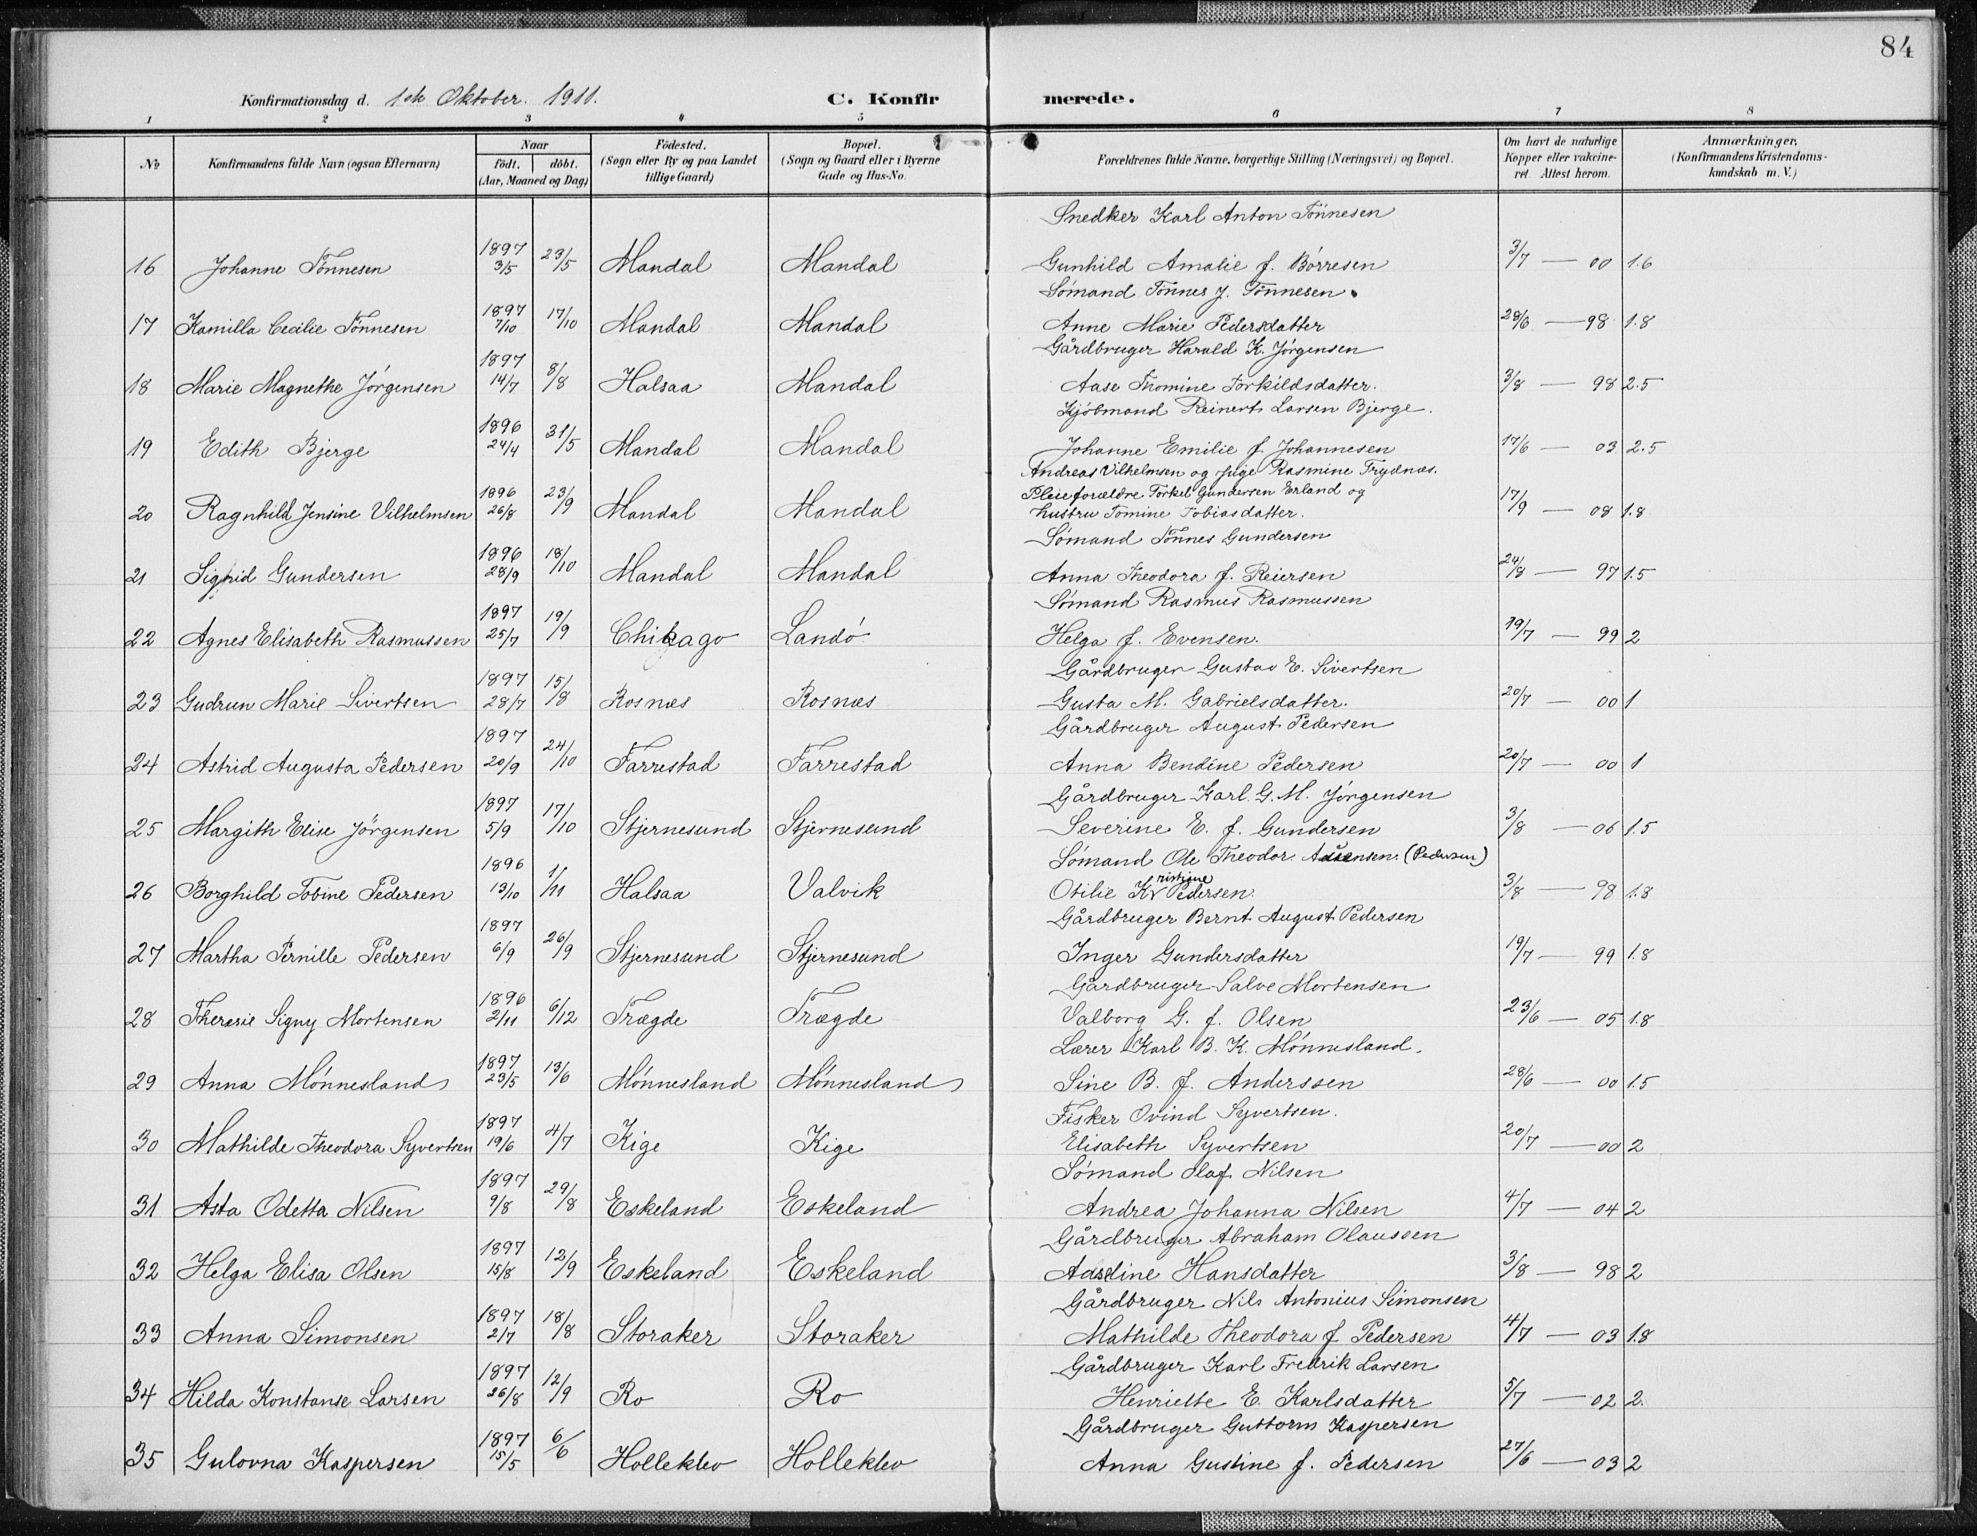 84
Konfirmationsdag d. 1ste Oktober. 1911. C. Konfirmerede.
1 2 3 4 5 6 7 8
No Konfirmandens fulde Navn (ogsaa Efternavn) Naar födt. döbt. (Aar, Maaned og Dag) Födested. (Sogn eller By og paa Landet tillige Gaard) Bopæl. (Sogn og Gaard eller i Byerne Gade og Hus-No. Forældrenes fulde Navne, borgerlige Stilling (Næringsvei) og Bopæl. Om havt de naturlige Kopper eller vakcineret Attest herom. Anmærkninger. (Konfirmandens Kristendomskundskab m. V.)
Snedker Karl Anton Tönnesen
16 Johanne Tönnesen 1897 3/5 23/5 Mandal Mandal Gunhild Amalie f. Börresen 3/7 — 00 1.6
Sömand Tönnes J. Tönnesen
17 Kamilla Cecilie Tönnesen 1897 7/10 17/10 Mandal Mandal Anne Marie Pedersdatter 28/6 — 98 1.8
Gårdbruger Harald K. Jörgensen
18 Marie Magnethe Jörgensen 1897 14/7 8/8 Halsaa Mandal Aase Thomine Torkildsdatter. 3/8 — 98 2.5
Kjöbmand Reinert Larsen Bjerge.
19 Edith Bjerge 1896 24/4 31/5 Mandal Mandal Johanne Emilie f. Johannesen 17/6 — 03 2.5
Andreas Vilhelmsen og pige Rasmine Trydnæs.
Pleieforældre Torkel Gundersen Erland og
20 Ragnhild Jensine Vilhelmsen 1896 26/8 23/9 Mandal Mandal hustru Tomine Tobiasdatter. 17/9 — 08 1.8
Sömand Tönnes Gundersen
21 Sigrid Gundersen 1896 28/9 18/10 Mandal Mandal Anna Theodora f. Reiersen 24/8 — 97 1.5
Sömand Rasmus Rasmussen
22 Agnes Elisabeth Rasmussen 1897 25/7 19/9 Chikago Landö Helga f. Evensen. 19/7 — 99 2
Gårdbruger Gustav E. Sivertsen
23 Gudrun Marie Sivertsen 1897 28/7 15/8 Rosnæs Rosnæs Gusta M. Gabrielsdatter. 20/7 — 00 1
Gårdbruger August Pedersen
24 Astrid Augusta Pedersen 1897 20/9 24/10 Farrestad Farrestad Anna Bendine Pedersen 20/7 — 00 1
Gårdbruger Karl G. M. Jörgensen
25 Margith Elise Jörgensen 1897 5/9 17/10 Stjernesund Stjernesund Severine E. f. Gundersen 3/8 — 06 1.5
Sömand Ole Theodor Aasensen (Pedersen)
26 Borghild Tobine Pedersen 1896 13/10 1/11 Halsaa Valvik Otilie Kristine Pedersen. 3/8 — 98 1.8
Gårdbruger Bernt August Pedersen
27 Martha Pernille Pedersen 1897 6/9 26/9 Stjernesund Stjernesund Inger Gundersdatter 19/7 — 99 1.8
Gårdbruger Salve Mortensen
28 Therese Signy Mortensen 1896 2/11 6/12 Trægde Trægde Valborg G. f. Olsen 23/6 — 05 1.8
Lærer Karl B. K. Mönnesland.
29 Anna Mönnesland 1897 23/5 13/6 Mönnesland Mönnesland Sine B. f. Anderssen 28/6 — 00 1.5
Fisker Ovind Syvertsen.
30 Mathilde Theodora Syvertsen 1897 19/6 4/7 Kige Kige Elisabeth Syvertsen 20/7 — 00 2
Sömand Olaf Nilsen
31 Asta Odetta Nilsen 1897 9/8 29/8 Eskeland Eskeland Andrea Johanna Nilsen 4/7 — 04 2
Gårdbruger Abraham Olaussen
32 Helga Elisa Olsen 1897 15/8 12/9 Eskeland Eskeland Hansdatter 3/8 — 98 2
Gårdbruger Nils Antonius Simonsen
33 Anna Simonsen 1897 2/7 18/8 Storaker Storaker Mathilde Theodora f Pedersen 4/7 — 03 1.8
Gårdbruger Karl Fredrik Larsen
34 Hilda Konstanse Larsen 1897 26/8 12/9 Ro Ro Henriette E. Karlsdatter 5/7 — 02 2.
Gårdbruger Guttorm Kaspersen
35 Gulovna Kaspersen 1897 15/5 6/6 Holleklev Holleklev Anna Gustine f. Pedersen 27/6 — 03 2